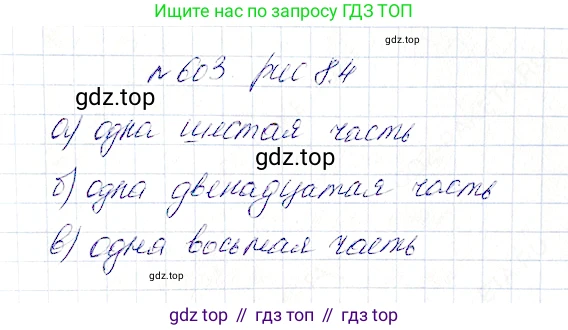 Ищите нас по запросу ГДЗ ТОП
№603. рис 8.4
gdz.top
а) одна шестая часть
gdz.top
б) одна двенадцатая часть
в) одна восьмая часть
gdz.top
gdz.top // гдз топ // гдз.топ